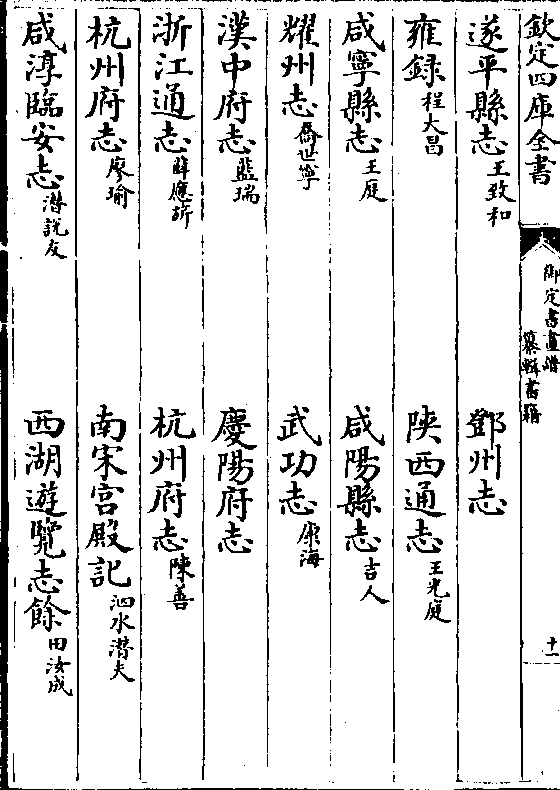 欽定四庫全書
御定書畫譜
纂輯書籍
十一
遂平縣志王致和
鄧州志
雍録程大昌
陝西通志王光庭
咸寧縣志王庭
咸陽縣志吉人
耀州志喬世寧
武功志康海
漢中府志藍瑞
慶陽府志
浙江通志薛應旂
杭州府志陳善
杭州府志廖瑜
南宋宫殿記泗水潜夫
咸淳臨安志潜說友
西湖遊覽志餘田汝成